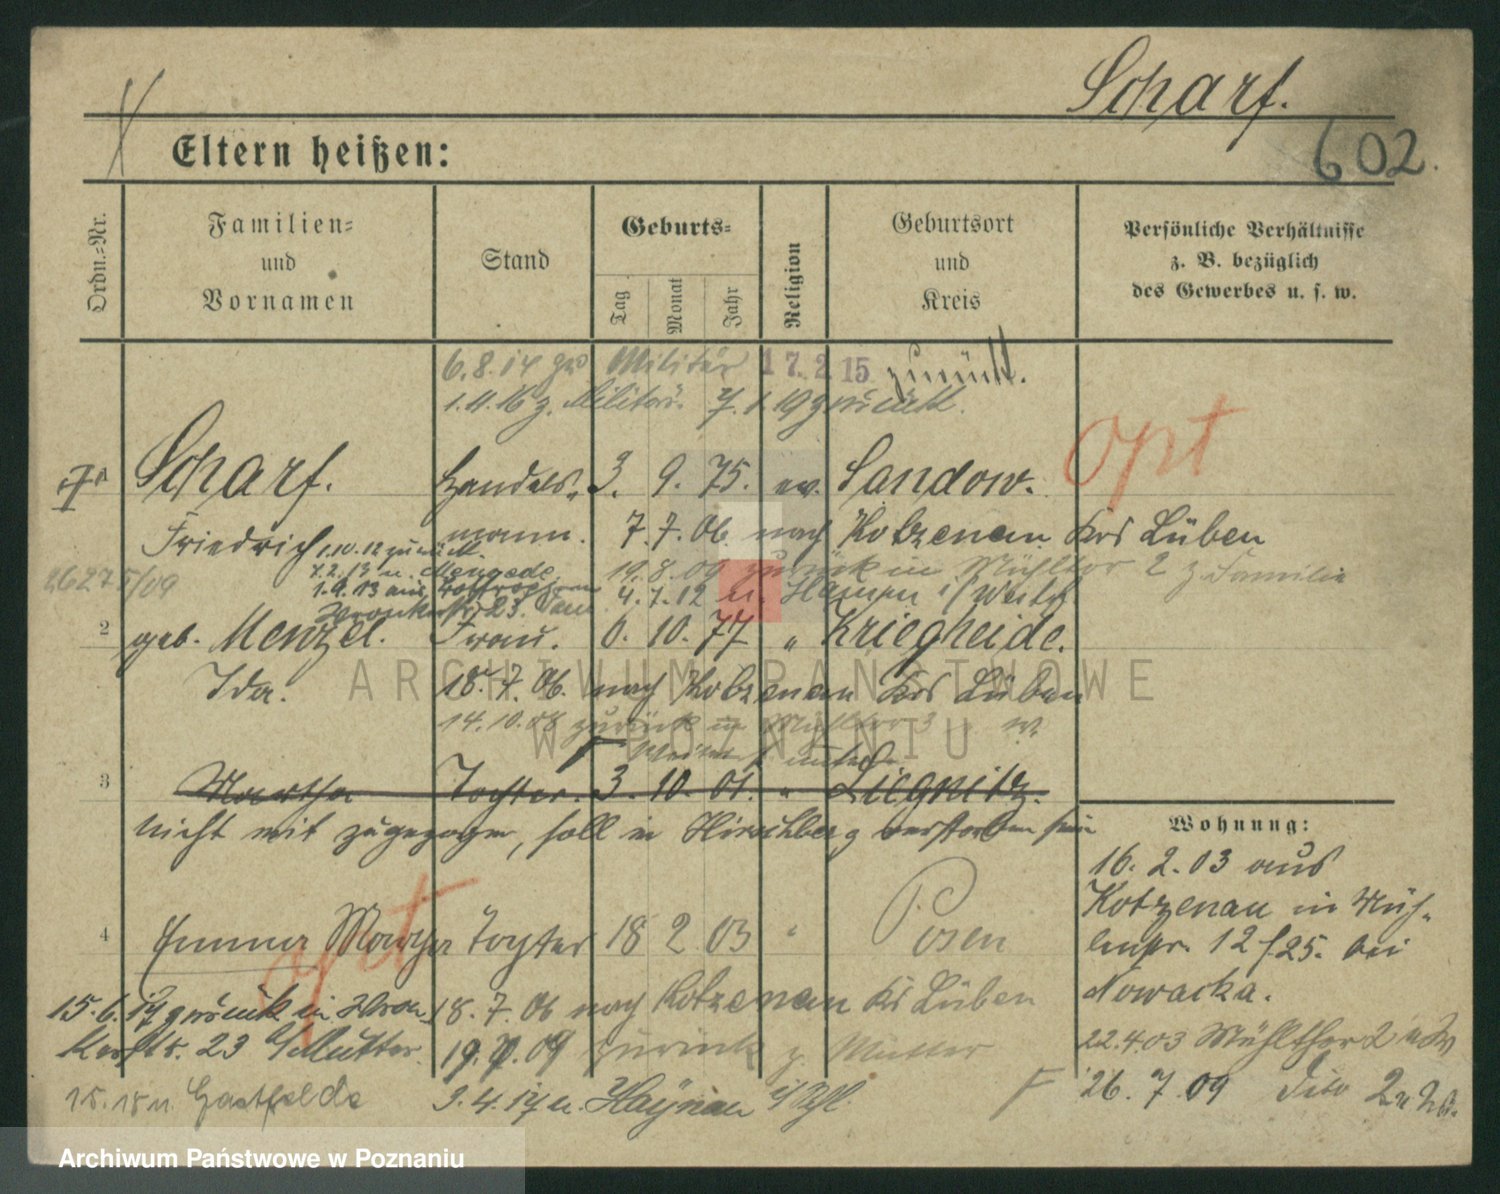 Scharf.
602.
Eltern heißen:
Ordn.=Nr.
Familien=
und
Vornamen
Stand
Geburts=
Tag
Monat
Jahr
Religion
Geburtsort
und
Kreis
Persönliche Verhältnisse
z. B. bezüglich
des Gewerbes u. s. w.
6.8.14 zum Militär 17.2.15 zurück.
1.11.16 z. Militär. 7.1.19 zurück.
opt
Scharf. Handels- 3. 9. 75. ev. Sandow.
Friedrich mann. 7.7.06. nach Kotzenau Krs Lüben
1.10.12 zurück
19.8.09 zurück in Mühltor 2 z. Familie
26275/09
1.2.13 n. Mengede
1.9.13 aus
4.7.12 n. Hamm i/Westf.
23.
2 geb. Menzel. Frau. 6. 10. 77 " Kriegheide.
Ida. 18.7.06. nach Kotzenau Krs Lüben
14.10.08 zurück in
3 Martha Tochter. 3. 10. 01. " Liegnitz.
nicht mit zugezogen, soll in Hirschberg verstorben sein
Wohnung:
16.2.03 aus
Kotzenau in Müh-
12 f. 25. bei
Nowacka.
22.4.03 Mühlthor 2
26.7.09 Dito
4 Emma Martha Tochter 18 2 03 " Posen
opt
15.6.17 zurück in Kron-
23 z Mutter.
18.7.06 nach Kotzenau Krs Lüben
19.7.09 zurück z. Mutter
3.4.17 n. Haynau i/Schl.
ARCHIWUM PAŃSTWOWE
W POZNANIU
Archiwum Państwowe w Poznaniu